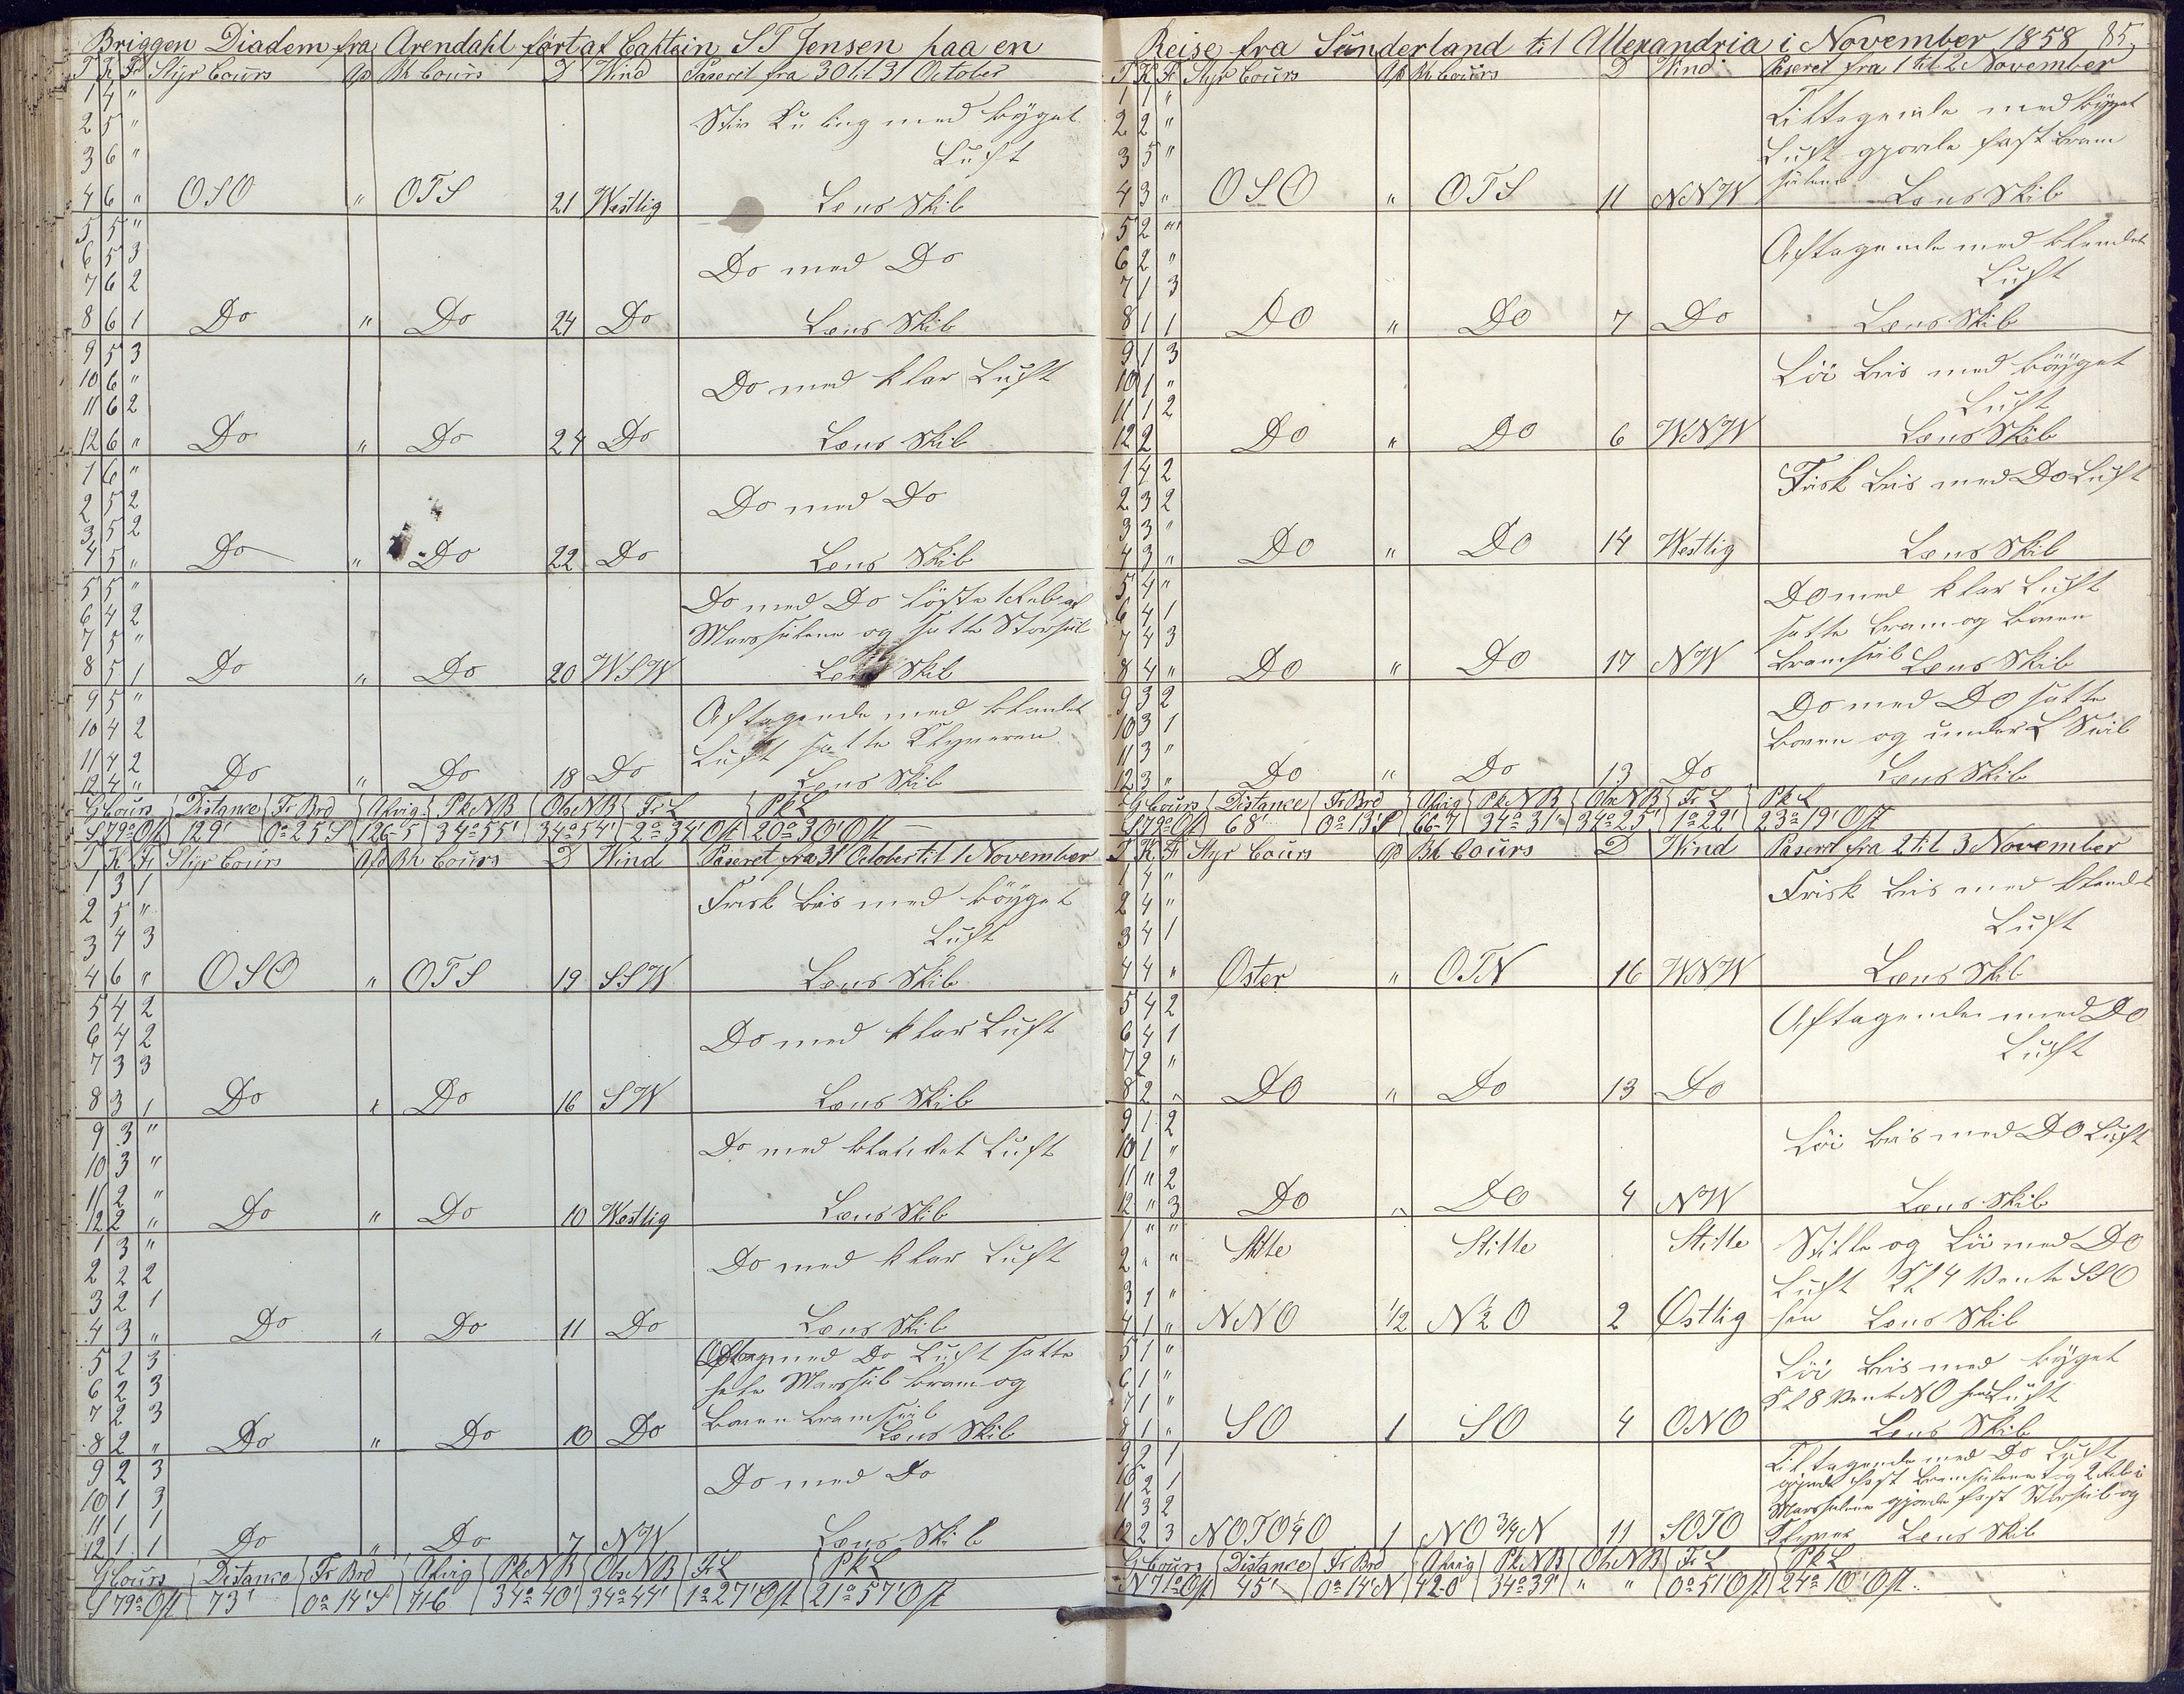 Briggen Diadem fra Arendahl fört af Captain S T Jensen paa en
T K Fr Styr Cours Afd Bh Cours D Wind Paseret fra 30 til 31 October
1 4 "
2 5 " Stiv Kuling med byget
3 6 " Luft
4 6 " OSO " OTS 21 Westlig Lens Skib
5 5 "
6 5 3 Do med Do
7 6 2
8 6 1 Do " Do 24 Do Lens Skib
9 5 3
10 6 " Do med klar Luft
11 6 2
12 6 " Do " Do 24 Do Lens Skib
1 6 "
2 5 2 Do med Do
3 5 2
4 5 " Do " Do 22 Do Lens Skib
5 5 " Do med Do löste 1 Reb af
6 4 2
7 5 " Marsseilene og satte Storseil
8 5 1 Do " Do 20 WSW Lens Skib
9 5 " Aftagende med blandet
10 4 2 Luft satte Klyveren
11 4 2
12 4 " Do " Do 18 Do Lens Skib
G Cours Distance Fr Brd Afvig Pk N B Obs N B Fr L Pk L
S 79° Ost 129' 0° 25' S 126-5 34° 55' 34° 54' 2° 34' Ost 20° 30' Ost
T K Fr Styr Cours Afd Bh Cours D Wind Paseret fra 31 October til 1 November
1 3 1
2 5 " Frisk Bris med böyget
3 4 3 Luft
4 6 " OSO " OTS 19 SSW Lens Skib
5 4 2
6 4 2 Do med klar Luft
7 3 3
8 3 1 Do " Do 16 SW Lens Skib
9 3 "
10 3 " Do med blandet Luft
11 2 "
12 2 " Do " Do 10 Westlig Lens Skib
1 3 "
2 2 2 Do med klar Luft
3 2 1
4 3 " Do " Do 11 Do Lens Skib
5 2 3 med Do Luft satte
6 2 3 Marsseil bram og
7 2 3 Boven bramseil
8 2 " Do " Do 10 Do Lens Skib
9 2 3
10 1 3 Do med Do
11 1 1
12 1 1 Do " Do 7 NW Lens Skib
G Cours Distance Fr Brd Afvig Pk N B Obs N B Fr L Pk L
S 79° Ost 73' 0° 14' S 71-6 34° 40' 34° 44' 1° 27' Ost 21° 57' Ost
Reise fra Sunderland til Allexandria i November 1858 85,
T K Fr Styr Cours Afd Bh Cours D Wind Paseret fra 1 til 2 November
1 1 " Tiltagende med byget
2 2 "
3 5 " Luft gjorde fast bram
4 3 " OSO " OTS 11 NNW seilene Lens Skib
5 2 "
6 2 " Aftagende med blendet
7 1 3 Luft
8 1 1 Do " Do 7 Do Lens Skib
9 1 3
10 1 " Löi bris med böyget
11 1 2 Luft
12 2 Do " Do 6 WNW Lens Skib
1 4 2
2 3 2 Frisk bris med Do Luft
3 3 "
4 3 " Do " Do 14 Westlig Lens Skib
5 4 " Do med klar Luft
6 4 1
7 4 3 satte bram og boven
8 4 " Do " Do 17 NW bramseil Lens Skib
9 3 2 Do med Do satte
10 3 1
11 3 " boven og under L Seil
12 3 " Do " Do 13 Do Lens Skib
G Cours Distance Fr Brd Afvig Pk N B Obs N B Fr L Pk L
S 79° Ost 68' 0° 13' S 66-7 34° 31' 34° 25' 1° 22' 23° 19' Ost
T K Fr Styr Cours Afd Bh Cours D Wind Paseret fra 2 til 3 November
1 4 "
2 4 " Frisk bris med blandet
3 4 1 Luft
4 4 " Oster " OTN 16 WNW Lens Skib
5 4 2
6 4 1 Aftagende med Do
7 2 " Luft
8 2 " Do " Do 13 Do
9 1 2
10 1 " Löi bris med Do Luft
11 " 2
12 " 3 Do " Do 4 NW Lens Skib
1 " "
2 " " Stille Stille Stille Stille og Löi med Do
3 1 " Luft Kl 4 Vente SSO
4 1 " NNO 1/2 N 1/2 O 2 Ostlig hen Lens Skib
5 1 "
6 1 " Löi bris med byget
7 1 " Kl 8 Vent NO hen Luft
8 1 " SO 1 SO 4 ONO Lens Skib
9 2 1 Tiltagende med Do Luft
10 2 1 gjorde fast bramseilene tog 2 Reb i
11 3 2 Marsseilene gjorde fast Storseil og
12 2 3 NOTO 1/4 O 1 NO 3/4 N 11 SOTO Klyver Lens Skib
G Cours Distance Fr Brd Afvig Pk N B Obs N B Fr L Pk L
N 71° Ost 45' 0° 14' N 42-0 34° 39' " " 0° 51' Ost 24° 10' Ost